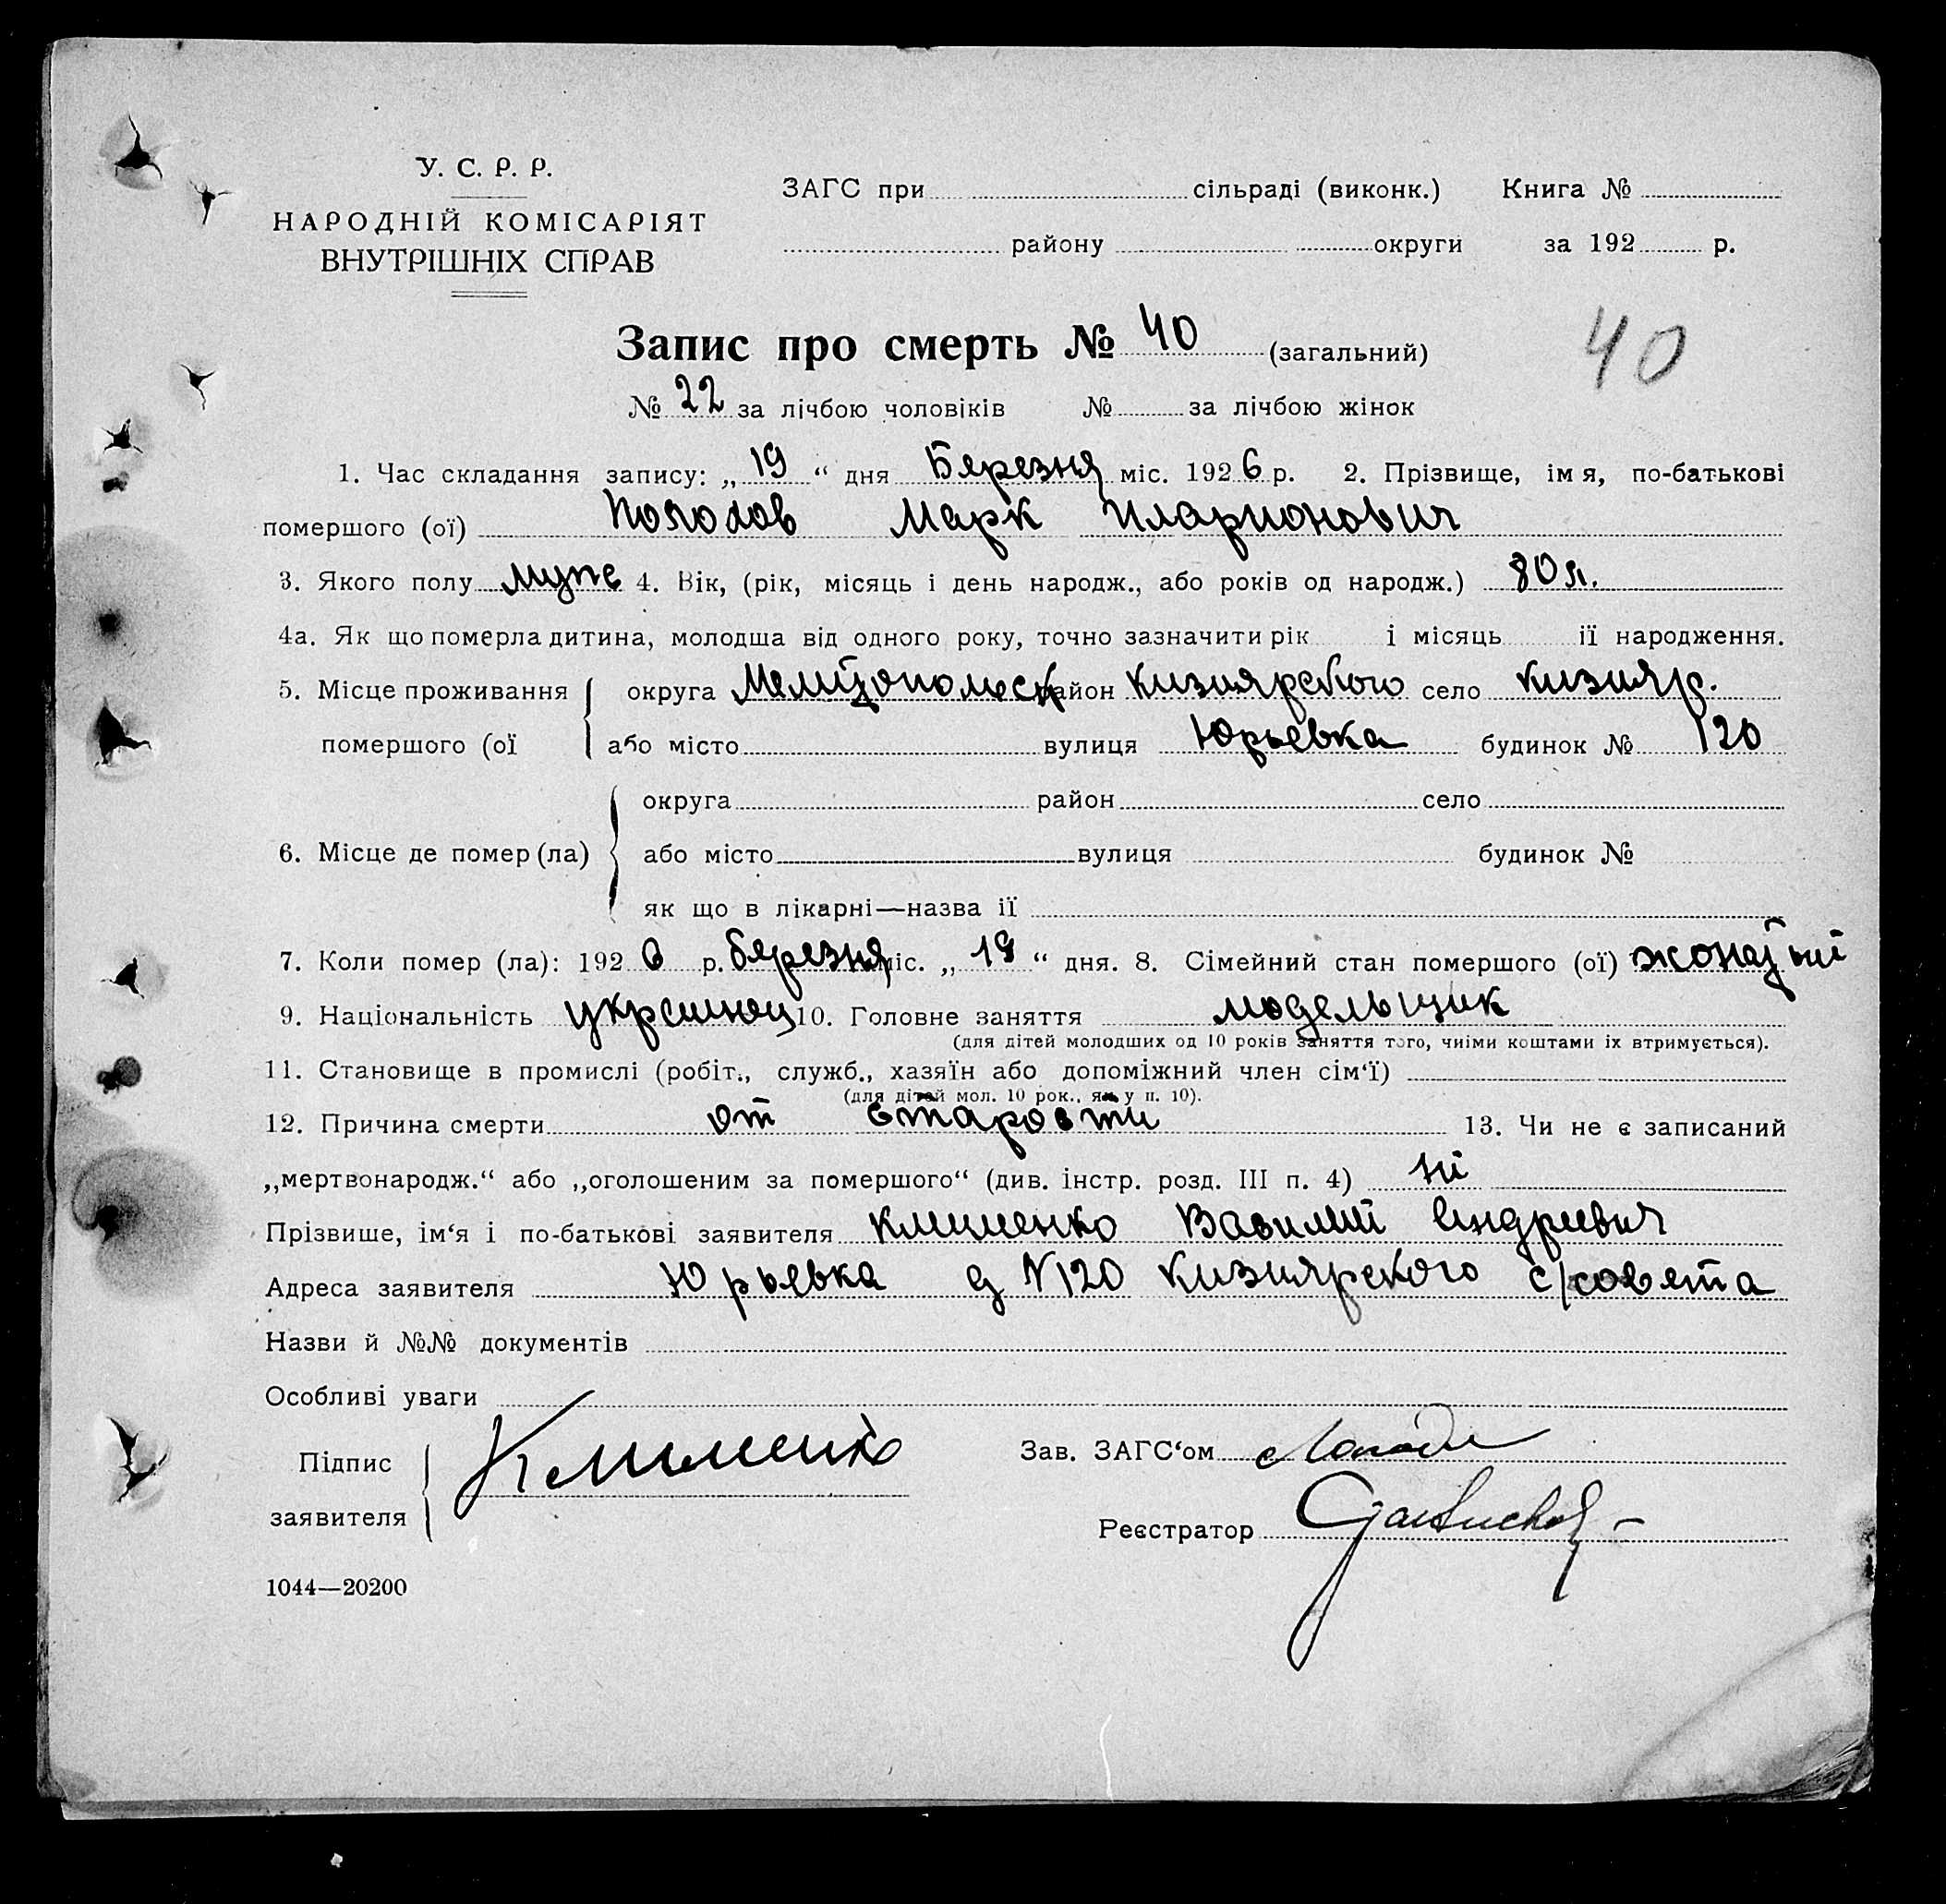 У. С. Р. Р.
НАРОДНІЙ КОМІСАРІЯТ
ВНУТРІШНІХ СПРАВ
ЗАГС при сільраді (виконк.) Книга №
району округи за 192 р.
Запис про смерть № 40 (загальний)
40
№ 22 за лічбою чоловіків № за лічбою жінок
1. Час складання запису: „19“ дня Березня міс. 1926 р. 2. Прізвище, імя, по-батькові
помершого (ої) Марк Иларионович
3. Якого полу муже 4. Вік, (рік, місяць і день народж., або років од народж.) 80 л.
4а. Як що померла дитина, молодша від одного року, точно зазначити рік і місяць її народження.
5. Місце проживання округа Мелітопольск район Кизиярского село Кизияр.
помершого (ої або місто вулиця Юрьевка будинок № 120
округа район село
6. Місце де помер (ла) або місто вулиця будинок №
як що в лікарні—назва її
7. Коли помер (ла): 1926 р. березня міс. „19“ дня. 8. Сімейний стан помершого (ої)
9. Національність украинец 10. Головне заняття модельщик
(для дітей молодших од 10 років заняття того, чиїми коштами їх втримується).
11. Становище в промислі (робіт., служб., хазяїн або допоміжний член сім‘ї)
(для дітей мол. 10 рок., як у п. 10).
12. Причина смерти от старости 13. Чи не є записаний
„мертвонародж.“ або „оголошеним за помершого“ (див. інстр. розд. III п. 4) ні
Прізвише, ім‘я і по-батькові заявителя Клименко Василий Андреевич
Адреса заявителя Юрьевка д N120 Кизиярского с/совета
Назви й №№ документів
Особливі уваги
Підпис Клименко Зав. ЗАГС‘ом
заявителя Реєстратор
1044—20200